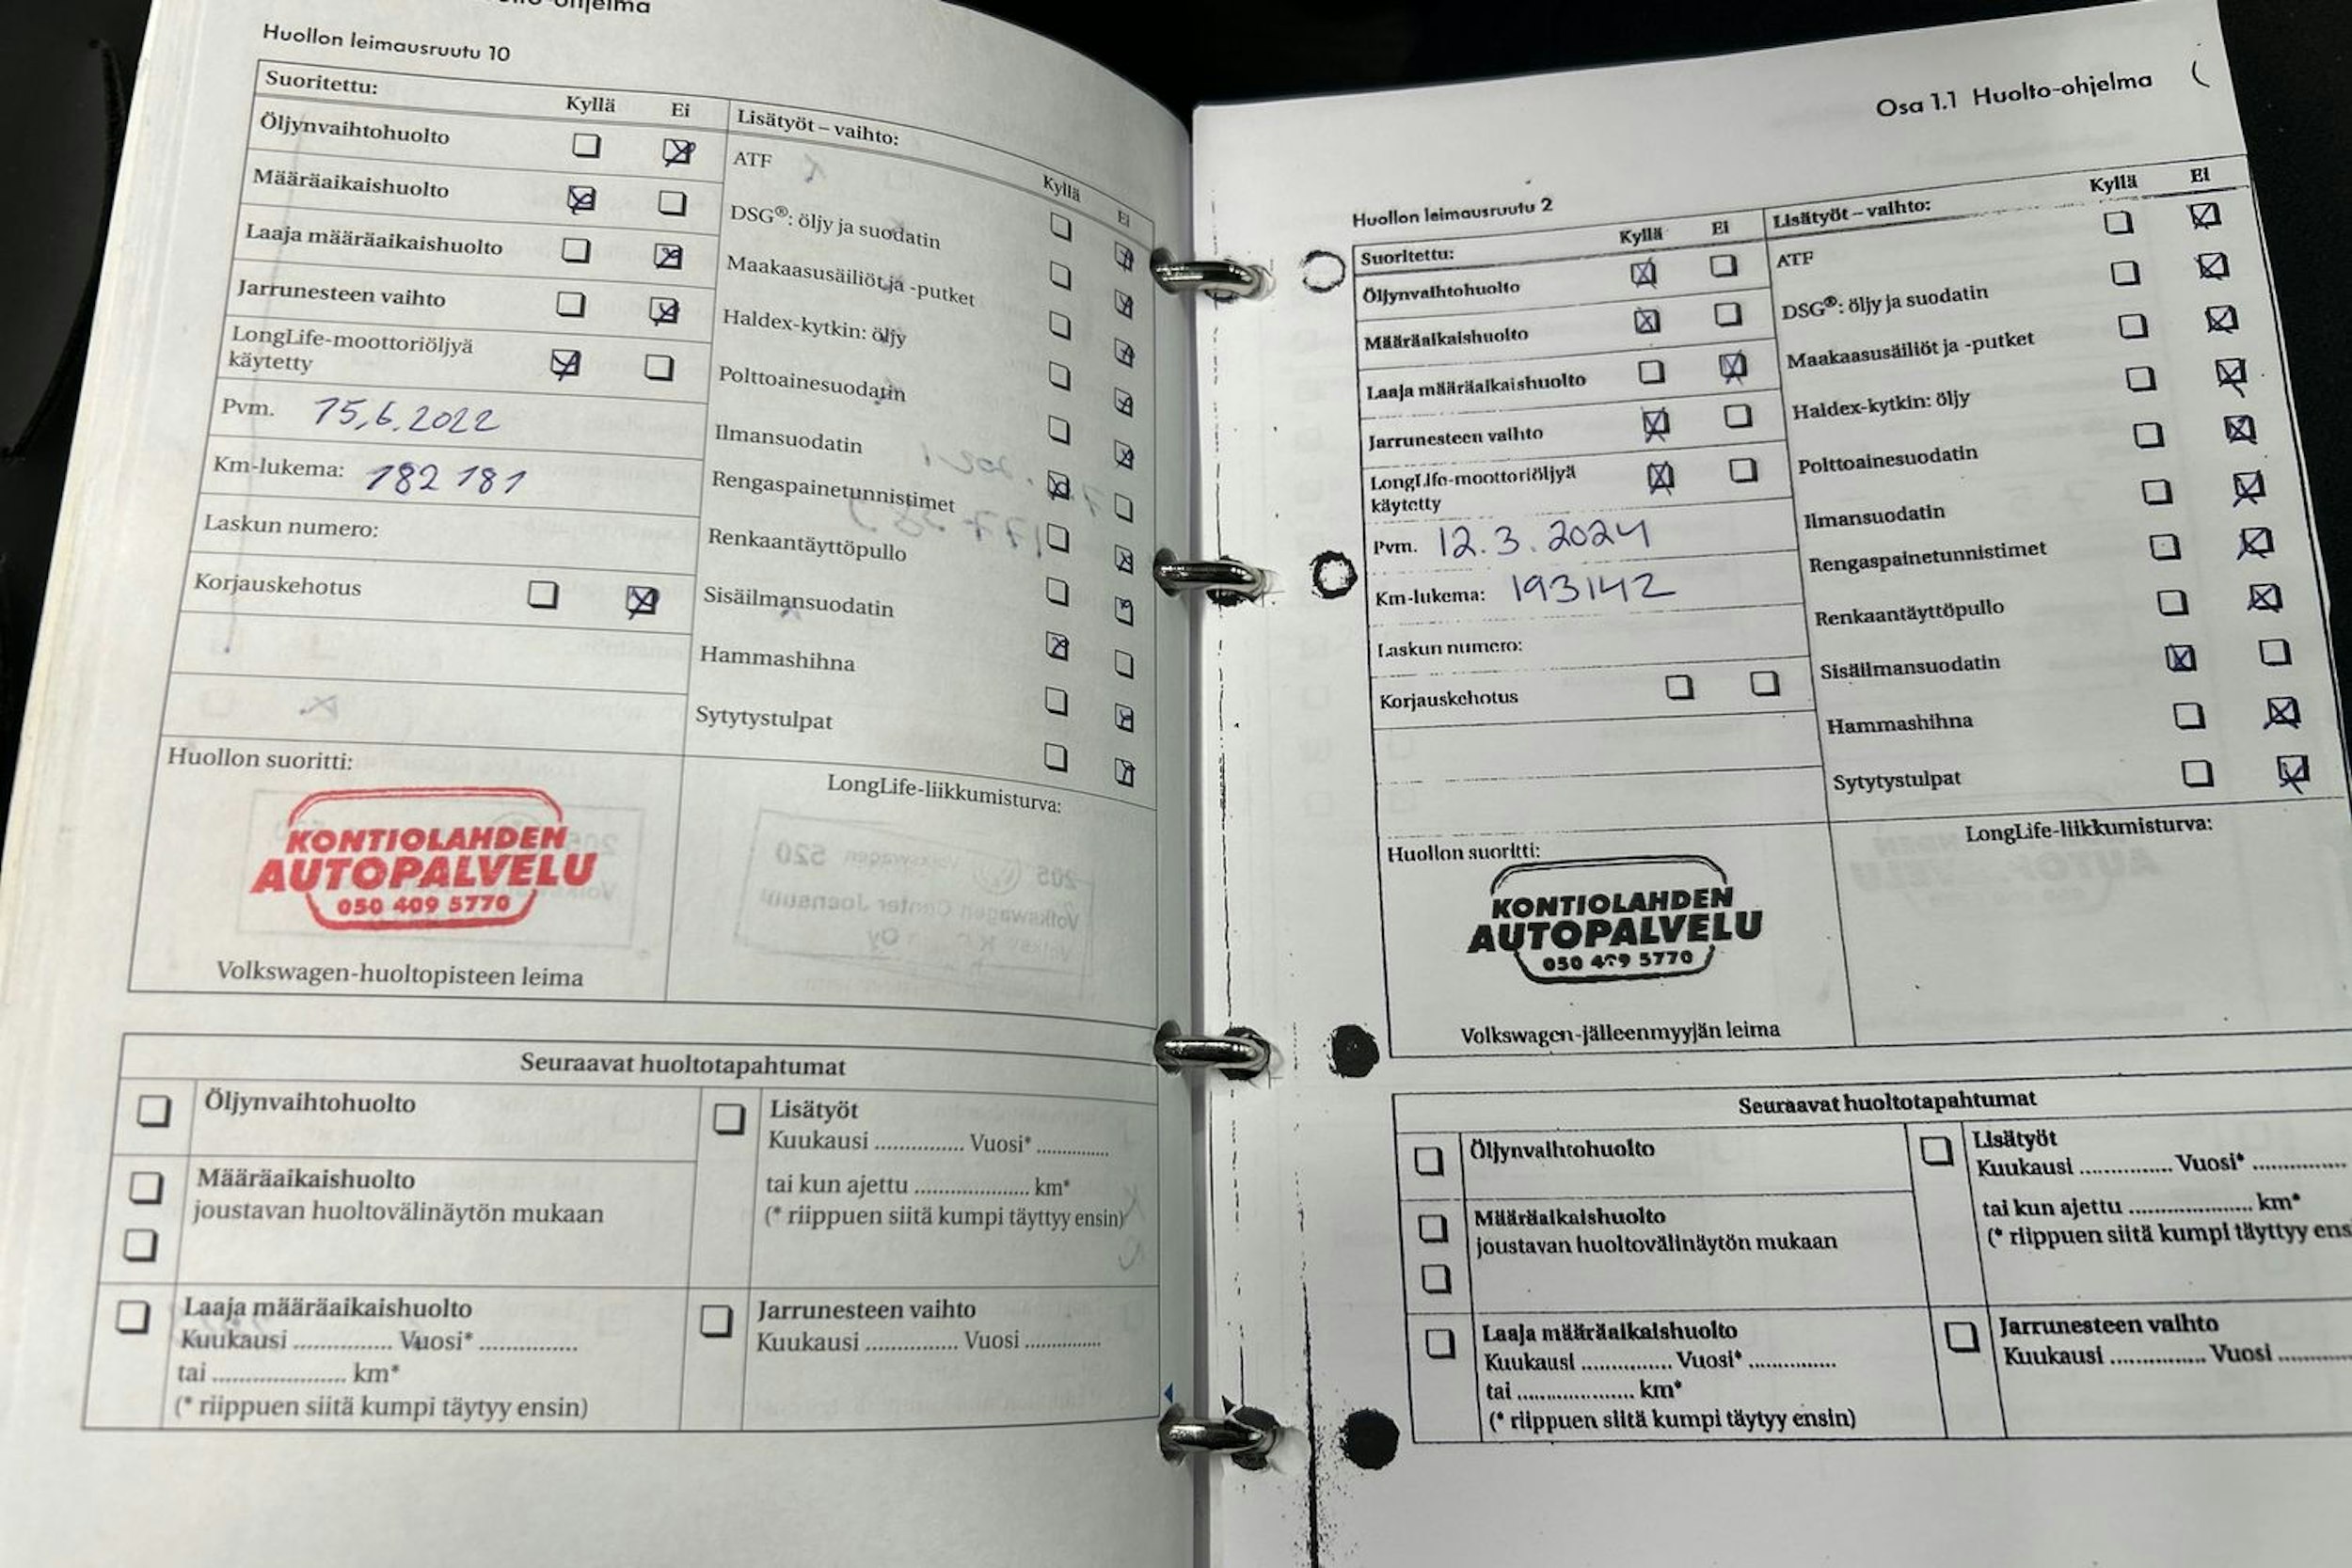 Huollon leimausruutu 10
Suoritettu: Kyllä Ei
Öljynvaihtohuolto
Määräaikaishuolto
Laaja määräaikaishuolto
Jarrunesteen vaihto
LongLife-moottoriöljyä
käytetty
Pvm. 15.6.2022
Km-lukema: 182 181
Laskun numero:
Korjauskehotus
Lisätyöt – vaihto: Kyllä Ei
ATF
DSG®: öljy ja suodatin
Maakaasusäiliöt ja -putket
Haldex-kytkin: öljy
Polttoainesuodatin
Ilmansuodatin
Rengaspainetunnistimet
Renkaantäyttöpullo
Sisäilmansuodatin
Hammashihna
Sytytystulpat
Huollon suoritti:
KONTIOLAHDEN
AUTOPALVELU
050 409 5770
Volkswagen-huoltopisteen leima
LongLife-liikkumisturva:
Seuraavat huoltotapahtumat
Öljynvaihtohuolto
Määräaikaishuolto
joustavan huoltovälinäytön mukaan
Laaja määräaikaishuolto
Kuukausi ............... Vuosi* ...............
tai ..................... km*
(* riippuen siitä kumpi täytyy ensin)
Lisätyöt
Kuukausi .............. Vuosi* ............
tai kun ajettu ................... km*
(* riippuen siitä kumpi täyttyy ensin)
Jarrunesteen vaihto
Kuukausi ............... Vuosi ............
Osa 1.1 Huolto-ohjelma
Huollon leimausruutu 2
Suoritettu: Kyllä Ei
Öljynvaihtohuolto
Määräaikaishuolto
Laaja määräaikaishuolto
Jarrunesteen vaihto
LongLife-moottoriöljyä
käytetty
Pvm. 12.3.2024
Km-lukema: 193142
Laskun numero:
Korjauskehotus
Lisätyöt – vaihto: Kyllä Ei
ATF
DSG®: öljy ja suodatin
Maakaasusäiliöt ja -putket
Haldex-kytkin: öljy
Polttoainesuodatin
Ilmansuodatin
Rengaspainetunnistimet
Renkaantäyttöpullo
Sisäilmansuodatin
Hammashihna
Sytytystulpat
Huollon suoritti:
KONTIOLAHDEN
AUTOPALVELU
050 409 5770
Volkswagen-jälleenmyyjän leima
LongLife-liikkumisturva:
Seuraavat huoltotapahtumat
Öljynvaihtohuolto
Määräaikaishuolto
joustavan huoltovälinäytön mukaan
Laaja määräaikaishuolto
Kuukausi ............... Vuosi* ...............
tai .................... km*
(* riippuen siitä kumpi täytyy ensin)
Lisätyöt
Kuukausi ............... Vuosi* ...............
tai kun ajettu .................... km*
(* riippuen siitä kumpi täyttyy ens
Jarrunesteen vaihto
Kuukausi ............... Vuosi ............